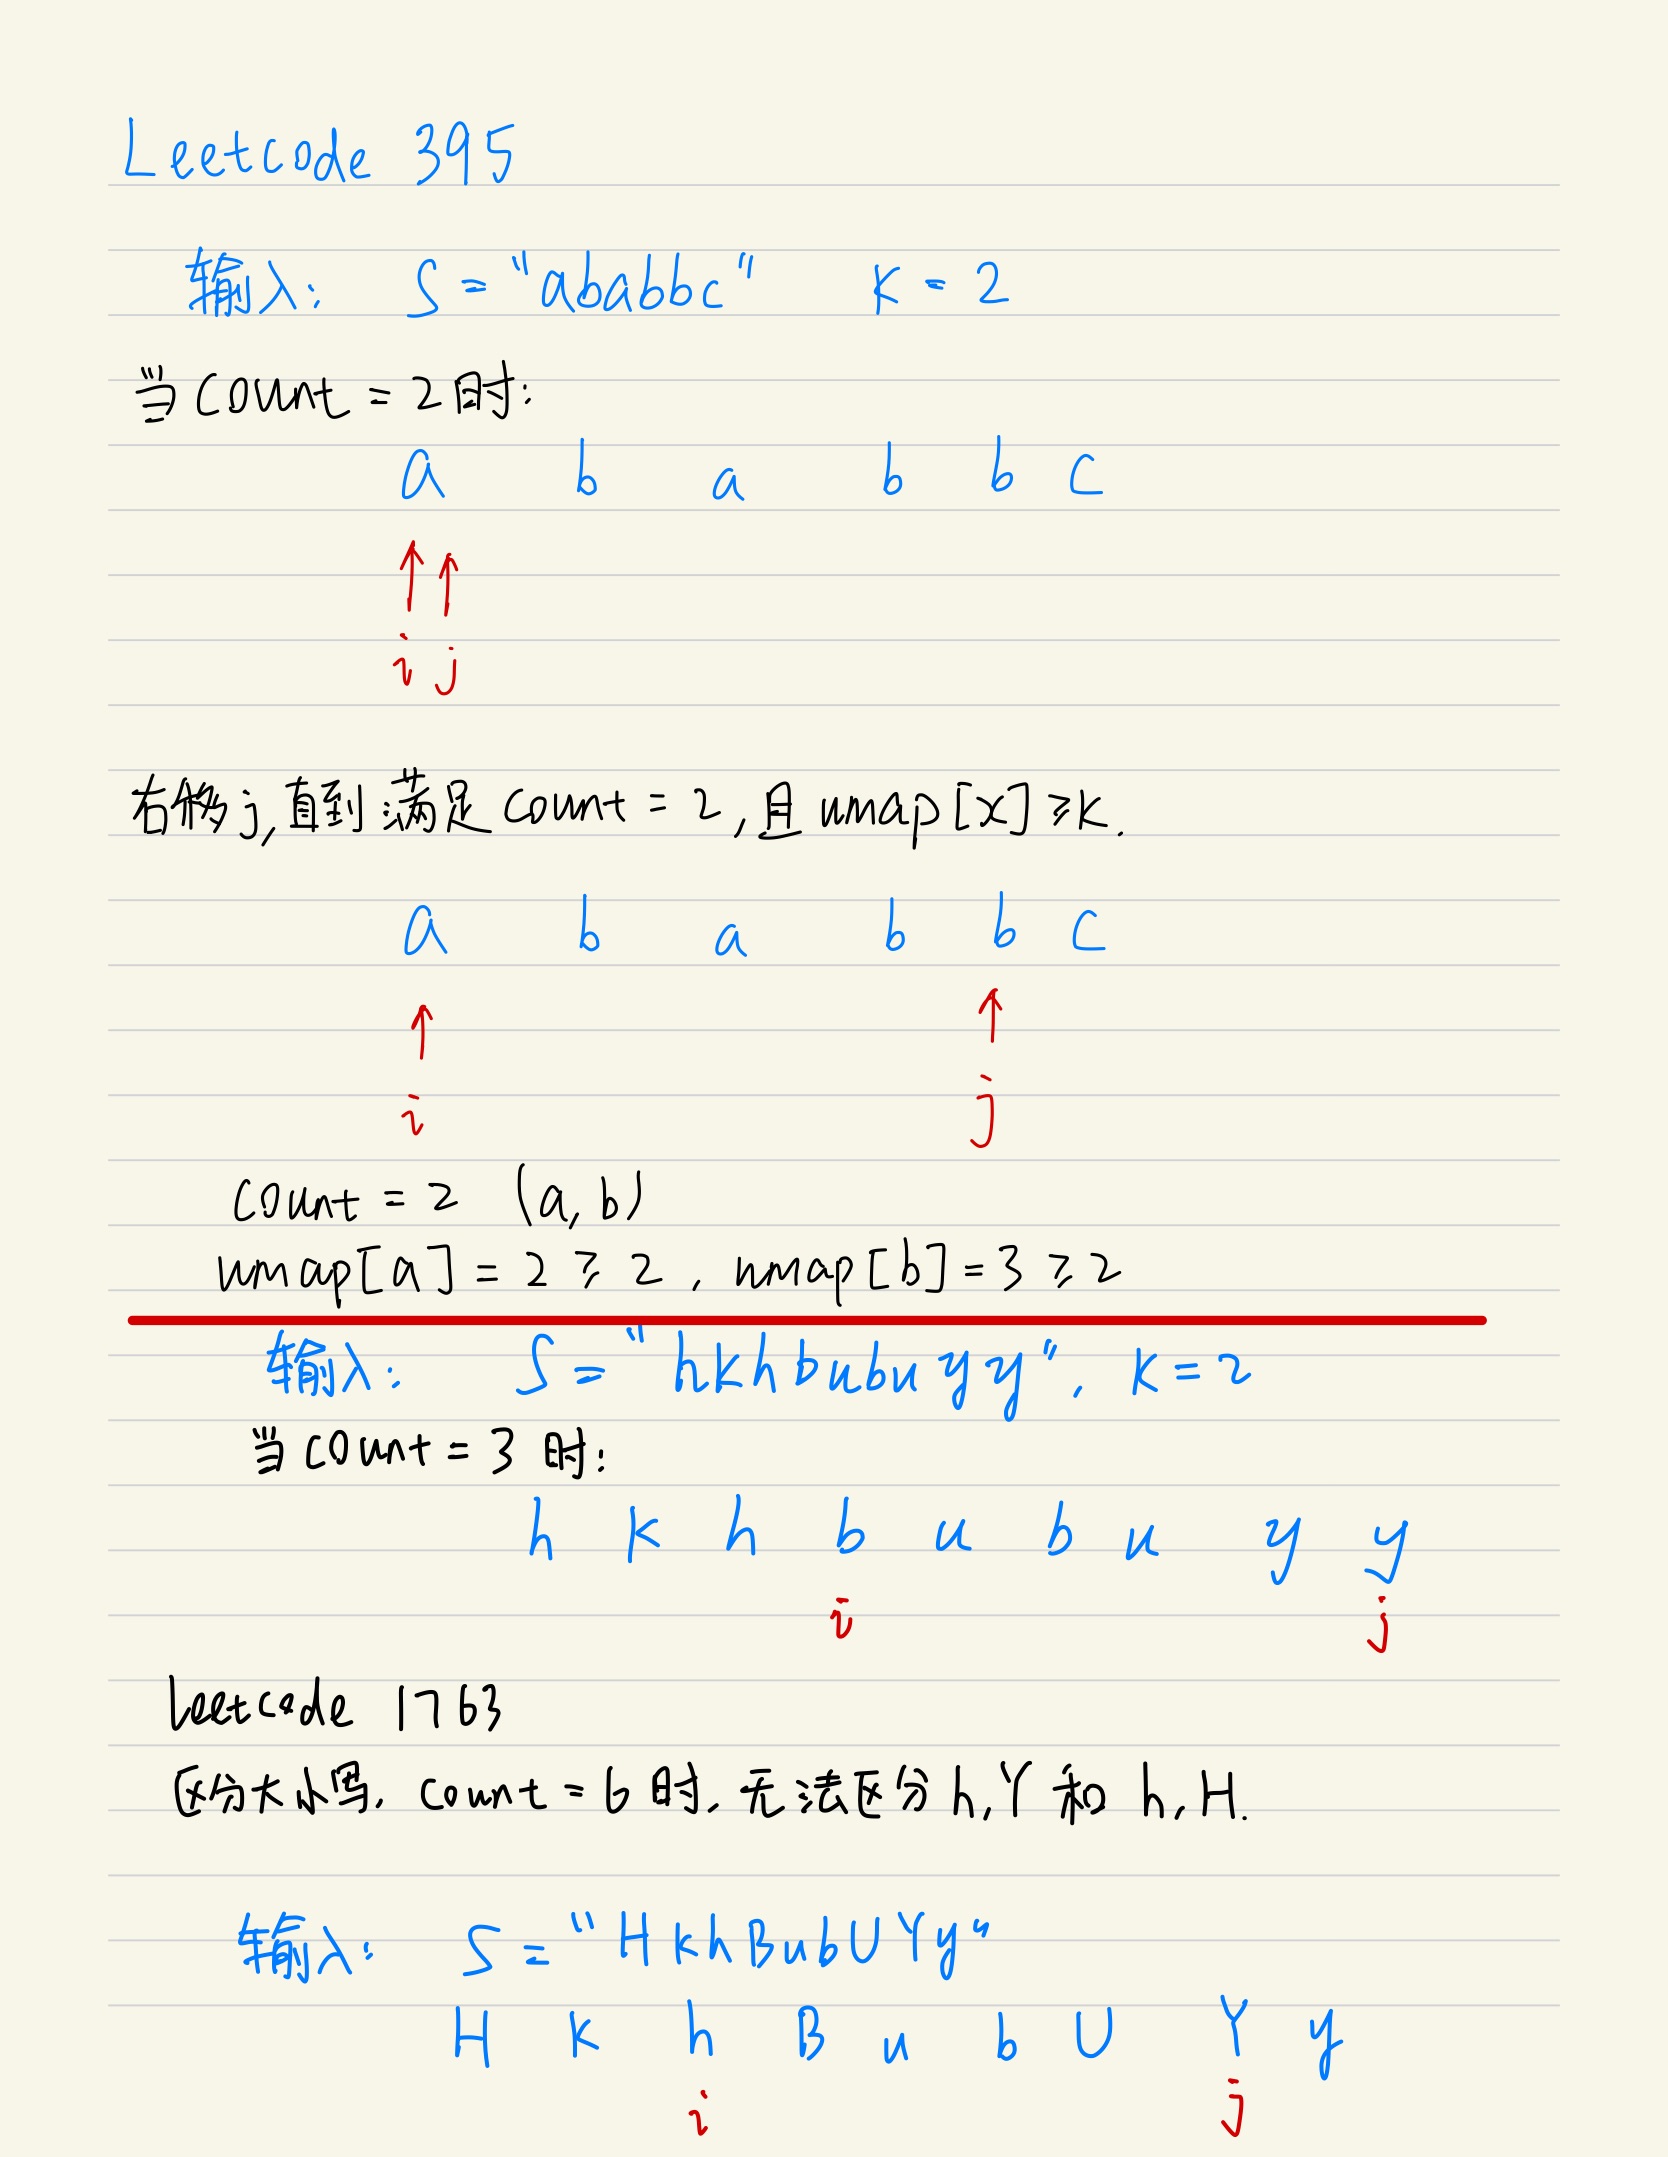 Leetcode 395
输入: S = "ababbc" K = 2
当 count = 2 时:
a b a b b c
i j
右移 j, 直到满足 count = 2, 且 umap[x] ≥ K.
a b a b b c
i j
count = 2 (a, b)
umap[a] = 2 ≥ 2, umap[b] = 3 ≥ 2
输入: S = "hkhbubuyy", K = 2
当 count = 3 时:
h k h b u b u y y
i j
leetcode 1763
区分大小写, count = 6 时, 无法区分 h, Y 和 h, H.
输入: S = "HkhBubUYy"
H k h B u b U Y y
i j